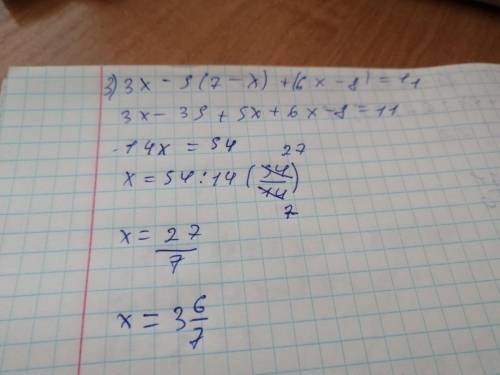 3) 3x - 5(7 - x) + (6x - 8) = 11
3x - 35 + 5x + 6x - 8 = 11
14x = 54
x = 54 : 14 (54/14) 27 7
x = 27/7
x = 3 6/7